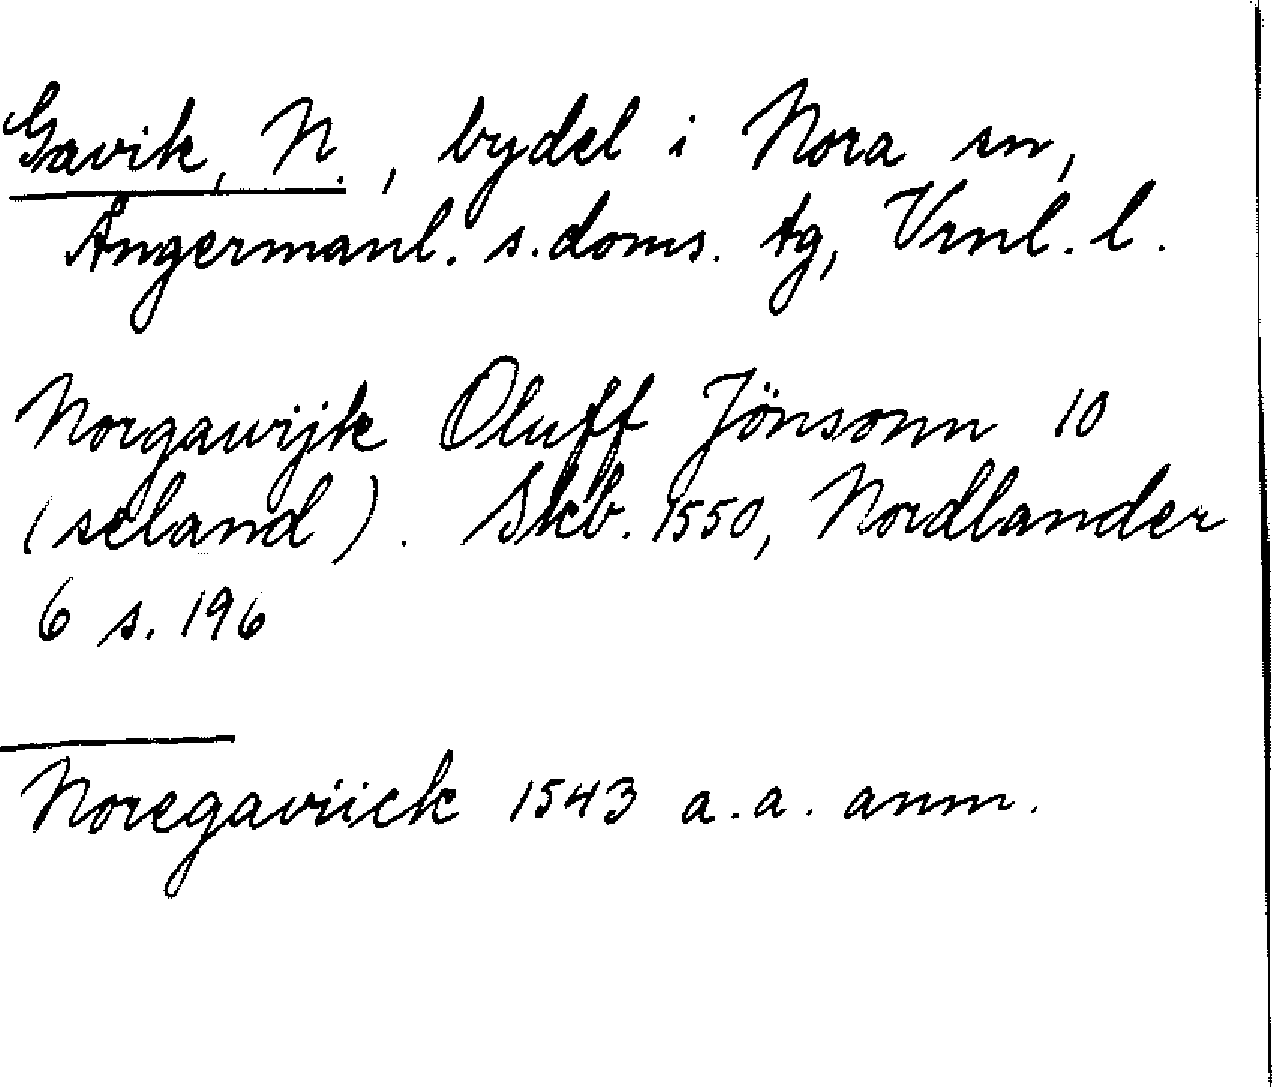 Gavik, N., bydel i Nora sn,
Ångermanl. s. doms. tg, Vrnl. l.
Norgawijk Oluff Jönsonn 10
(seland). Skb. 1550, Nordlander
6 s. 196
Noregaviick 1543 a. a. anm.